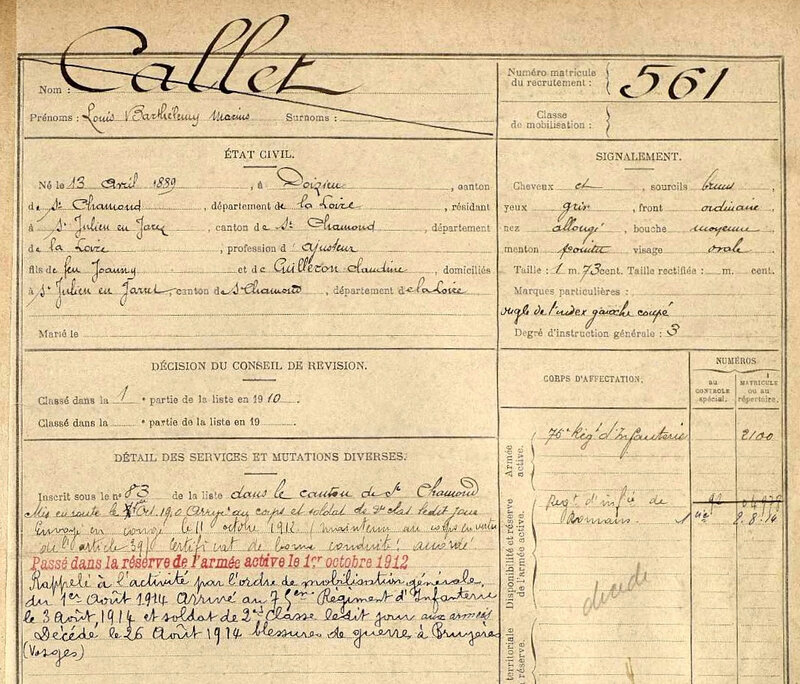 Nom : Callet
Prénoms : Louis Barthélemy Marius Surnoms :
Numéro matricule du recrutement : 561
Classe de mobilisation :
ÉTAT CIVIL.
Né le 13 avril 1889, à Doizieu, canton
de St Chamond, département de la Loire, résidant
à St Julien en Jarez, canton de St Chamond, département
de la Loire, profession d'ajusteur
fils de feu Joanny et de Guilleron Claudine, domiciliés
à St Julien en Jarret, canton de St Chamond, département de la Loire
Marié le
SIGNALEMENT.
Cheveux et sourcils bruns
yeux gris, front ordinaire
nez allongé, bouche moyenne
menton pointu visage ovale
Taille : 1 m. 73 cent. Taille rectifiée : m. cent.
Marques particulières :
ongle de l'index gauche coupé
Degré d'instruction générale : 3
DÉCISION DU CONSEIL DE REVISION.
Classé dans la 1e partie de la liste en 1910.
Classé dans la e partie de la liste en 19
CORPS D'AFFECTATION.
NUMÉROS
AU CONTROLE spécial.
MATRICULE ou au répertoire.
Armée active.
75e Régt d'Infanterie 2100
Disponibilité et réserve de l'armée active.
Regt d'infie de
Romans. 2.8.14
décédé
territoriale
réserve.
DÉTAIL DES SERVICES ET MUTATIONS DIVERSES.
Inscrit sous le no 83 de la liste dans le canton de St Chamond
Mis en route le Oct. 1910 Arrivé au corps et soldat de 2e clas ledit jour
Envoyé en congé le 11 octobre 1912 maintenu au corps en vertu
de l'article 39) certificat de bonne conduite accordé
Passé dans la réserve de l'armée active le 1er octobre 1912
Rappelé à l'activité par l'ordre de mobilisation générale
du 1er Août 1914 Arrivé au 75eme Régiment d'Infanterie
le 3 Août 1914 et soldat de 2e Classe ledit jour aux armées
Décédé le 26 Août 1914 blessures de guerre à Bruyères
(Vosges)